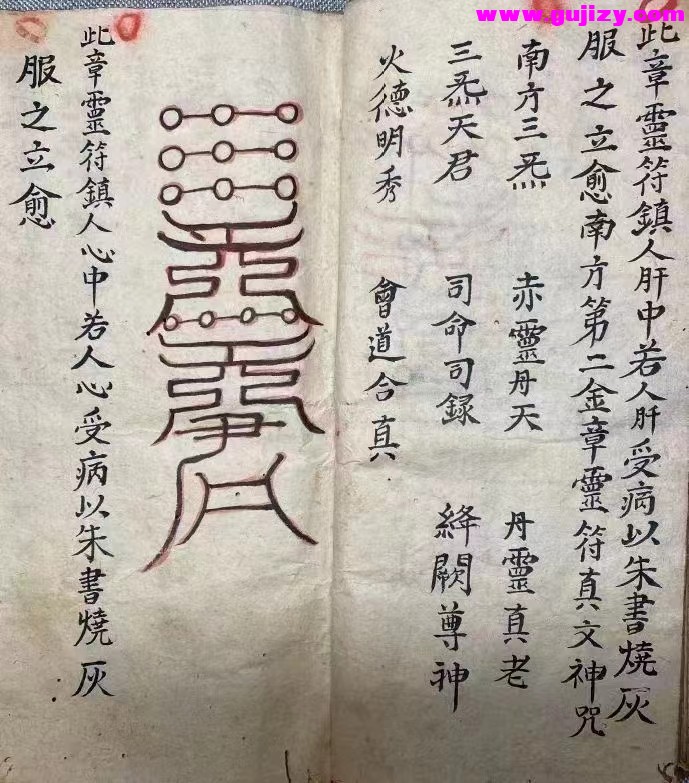 www.gujizy.com
此章靈符鎮人肝中若人肝受病以朱書燒灰
服之立愈南方第二金章靈符真文神咒
南方三炁 赤靈丹天 丹靈真老
三炁天君 司命司録 絳闕尊神
火德明秀 會道合真
此章靈符鎮人心中若人心受病以朱書燒灰
服之立愈